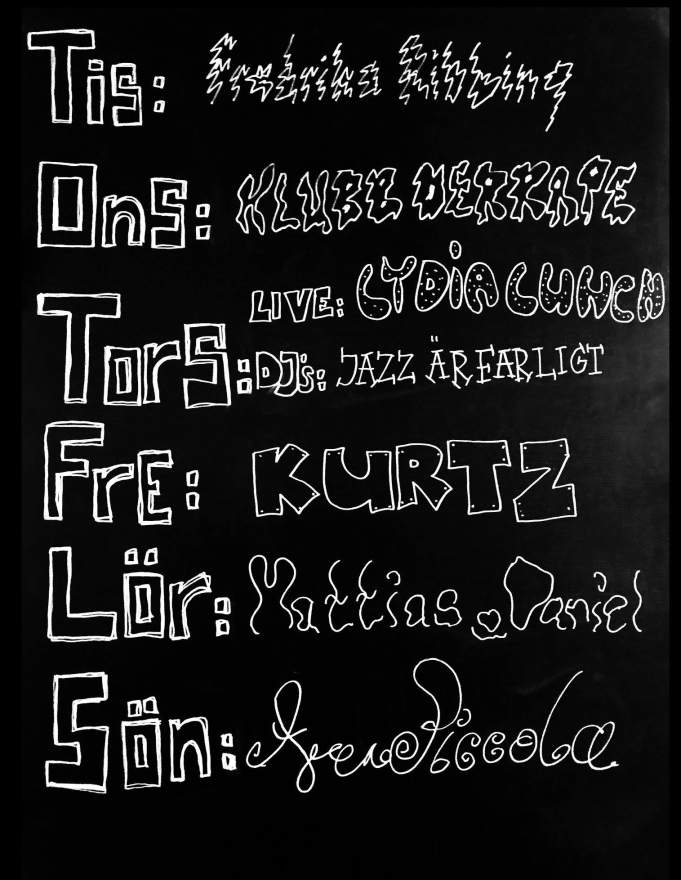 Tis: Fredrika Ribbing
Ons: KLUBB DERRAPE
Tors: LIVE: LYDIA LUNCH
DJ's: JAZZ ÄR FARLIGT
FrE: KURTZ
Lör: Mattias & Daniel
Sön: Piccola